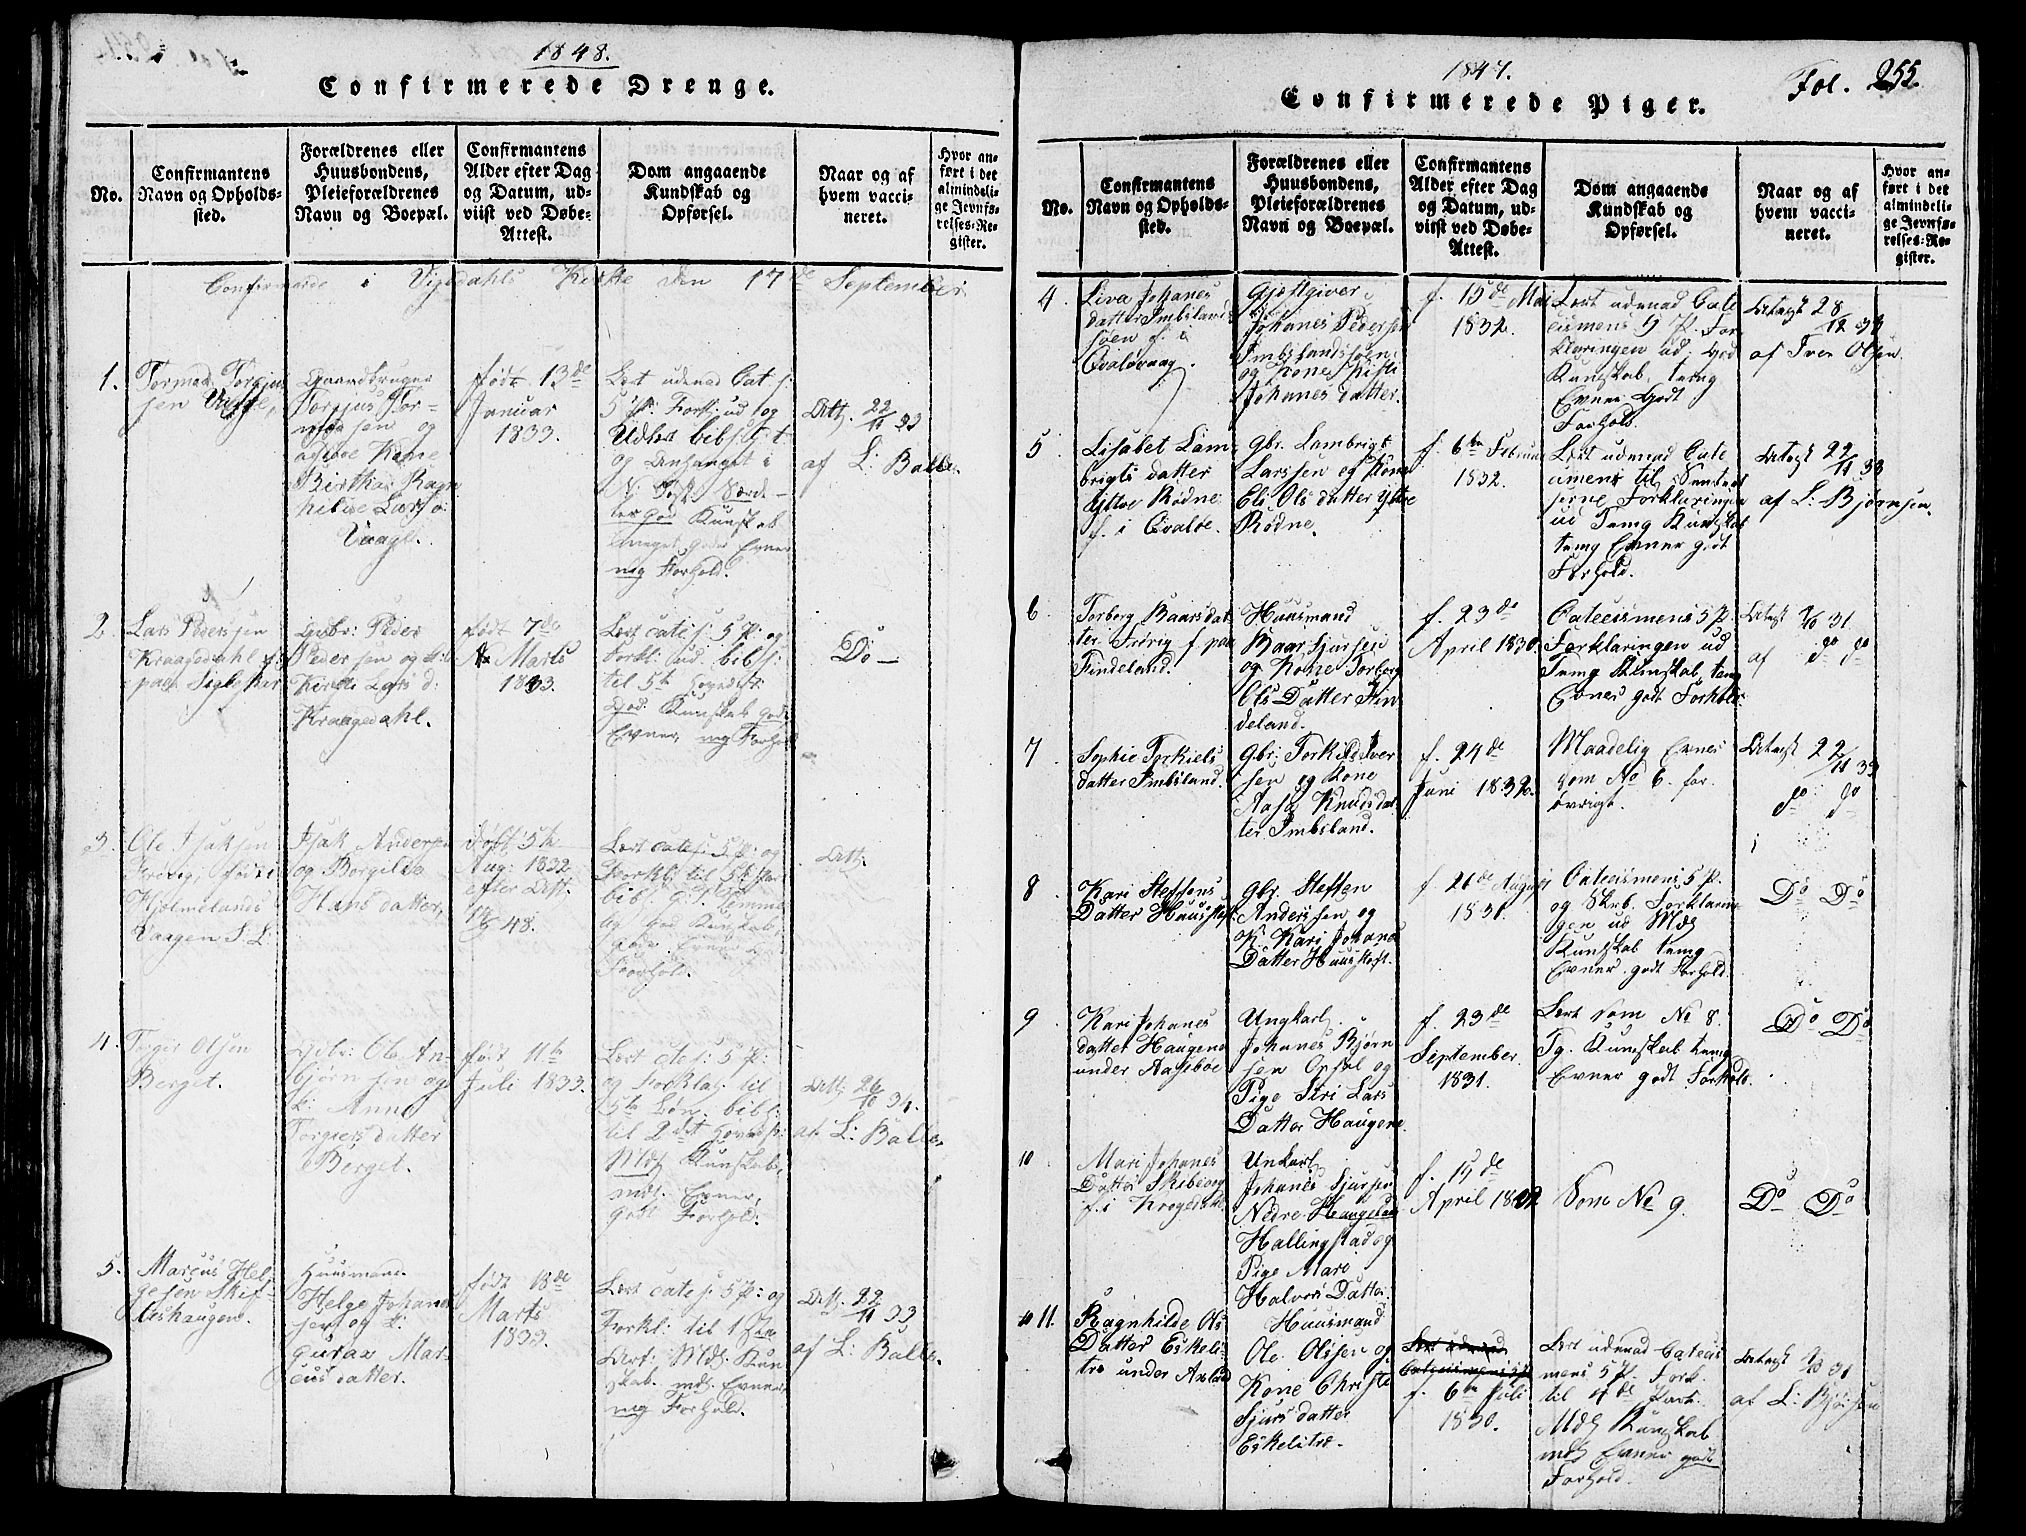 1848.
Confirmerede Drenge.
No.
Confirmantens
Navn og Opholds-
sted.
Forældrenes eller
Huusbondens,
Pleieforældrenes
Navn og Boepæl.
Confirmantens
Alder efter Dag
og Datum, ud-
viist ved Døbe-
Attest.
Dom angaaende
Kundskab og
Opførsel.
Naar og af
hvem vacci-
neret.
Hvor an-
ført i det
almindeli-
ge Jevnfø-
relses-Re-
gister.
Confirmerede i Vigedahls Kirke den 17de September
1.
Tormod Torgius
sen Vaage,
Gaardbruger
Torgius Tor-
mosen og
Kone
Birtha Ragn
hilde Lars d:
Vaage.
født 13de
Januar
1833.
Lært udenad Cat:
5 P: Forkl: ud og
Udtog bibl:
og Anhanget i
N: Test. Særde-
les god Kunskab
meget gode Evner
mg Forhold.
Att. 22/11 33
af L: Balle.
2.
Lars Pedersen
Kraagedahl f:
paa
Gbr: Peder
Pedersen og k:
Kirsti Lars d:
Kraagedahl.
født 7de
Marts
1833.
Lært cate: 5 P: og
Forkl: ud. bibl:
til 5t
God Kunskab gode
Evner, mg Forhold
Do —
3.
Ole Isaksen
født i
Hjelmelands
Vaagen S. L:
Isak Anders
og Borgilda
Hans datter,
født 5te
Aug: 1832
efter Att.
48.
Lært cate: 5 P: og
Forkl: til 5te
bibl:
god Kunskab
gode Evner g
Forhold.
Att.
4.
Torger Olsen
Berget.
Gbr: Ole An-
bjørnsen og
k: Anna
Torgiers datter
Berget.
født 11te
Juli 1833.
Lært cate: 5 P:
og Forkla: til
5te Bøn. bibl:
til 2det
Mdl Kunskab,
mdl. Evner,
godt Forhold.
Att. 26/10 34.
af L: Balle.
5.
Marcus Hel-
gesen Skif-
teshaugen.
Huusmand
Helge Johane
sen og k:
Guroe Mar-
cus datter.
født 18de
Marts
1833.
Lært cate: 5 P: og
Forkl: til 1ste
Art: Mdl. Kun
skab. mdl. Evner,
mg Forhold.
Att. 22/11 33
af L: Balle.
1847.
Confirmerede Piger.
Fol. 255.
No.
Confirmantens
Navn og Opholds-
sted.
Forældrenes eller
Huusbondens,
Pleieforældrenes
Navn og Boepæl.
Confirmantens
Alder efter Dag
og Datum, ud-
viist ved Døbe-
Attest.
Dom angaaende
Kundskab og
Opførsel.
Naar og af
hvem vacci-
neret.
Hvor an-
ført i det
almindeli-
ge Jevnfø-
relses-Re-
gister.
4.
Liva Johanes
datter Imbsland
søen f. i
Qvalevaag.
Gjestgiver
Johanes Pedersen
Imbslandssøen
og Kone Kristi
Johanes datter.
f. 15de Mai
1832.
Lært udenad Cate
cismens 5 P. For
klaringen ud. God
Kunskab, temg
Evner. Godt
Forhold.
Attest 28/12 33
af Iver Olsen.
5
Lisabet Lam
brigts datter
Yttre Rødne
f. i Qvaloe.
Gbr. Lambrigt
Larssen og Kone
Eli Ols datter Yttre
Rødne.
f. 6te Februar
1832.
Lært udenad Cate
cismens til Sacramen
terne, Forklaringen
ud Temg Kunskab
temg Evner godt
Forhold.
Attest 22/11 33
af L: Bjørnsen.
6
Torborg Baarsdat
ter f. paa
Findeland.
Huusmand
Baar Sjursen
og Kone Torborg
Ols Datter Fin
deland.
f. 23de
April 1830.
Catecismens 5 P.
Forklaringen ud
Temg Kunskab, temg
Evner godt Forhold
Attest 9/10 31.
af do do
7
Sophie Torkiels
datter Imbsland.
Gbr: Torkild Iver
sen og Kone
Aasa Knudsdat
ter Imbsland.
f. 24de
Juni 1832.
Maadelig Evner
som No 6. for
øvrigt.
Attest 22/11 33
do do
8
Kari Steffens
Datter Huustoft.
Gbr. Steffen
Anderssen og
K. Kari Johanes
Datter Huustoft.
f. 21de August
1831.
Catecismens 5 P.
og Skrb. Forklarin
gen ud Mdl
Kundskab temg
Evner godt Forhold.
Do Do
9
Kari Johanes
datter Haugene
under Aaseboe
Ungkarl
Johanes Bjørn
sen Opsal og
Pige Siri Lars
Datter Haugene.
f. 23de
September
1831.
Lært som No 8.
Tg. Kunskab temg
Evner godt Forhold.
Do Do
10
Mari Johanes
Datter Skibevog
f. i Krogedahl.
Unkarl
Johanes Sjursen
Nedre Haugeland
Hallingstad og
Pige Mare
Halvors Datter.
f. 15de
April 1832
Som No 9.
Do Do
11.
Ragnhilde Ols
Datter Eskeli-
tre under Axland
Huusmand
Ole Olssen og
Kone Christi
Sjursdatter
Eskelitre.
Lært udenad
Catecismens 5 P
f. 6te Juli
1830.
Lært udenad Catecis
mens 5 P. Fork.
til 4de Part.
Mdl Kunskab
mdl Evner godt
Forhold.
Attest 9/10 31
af L: Bjørnsen